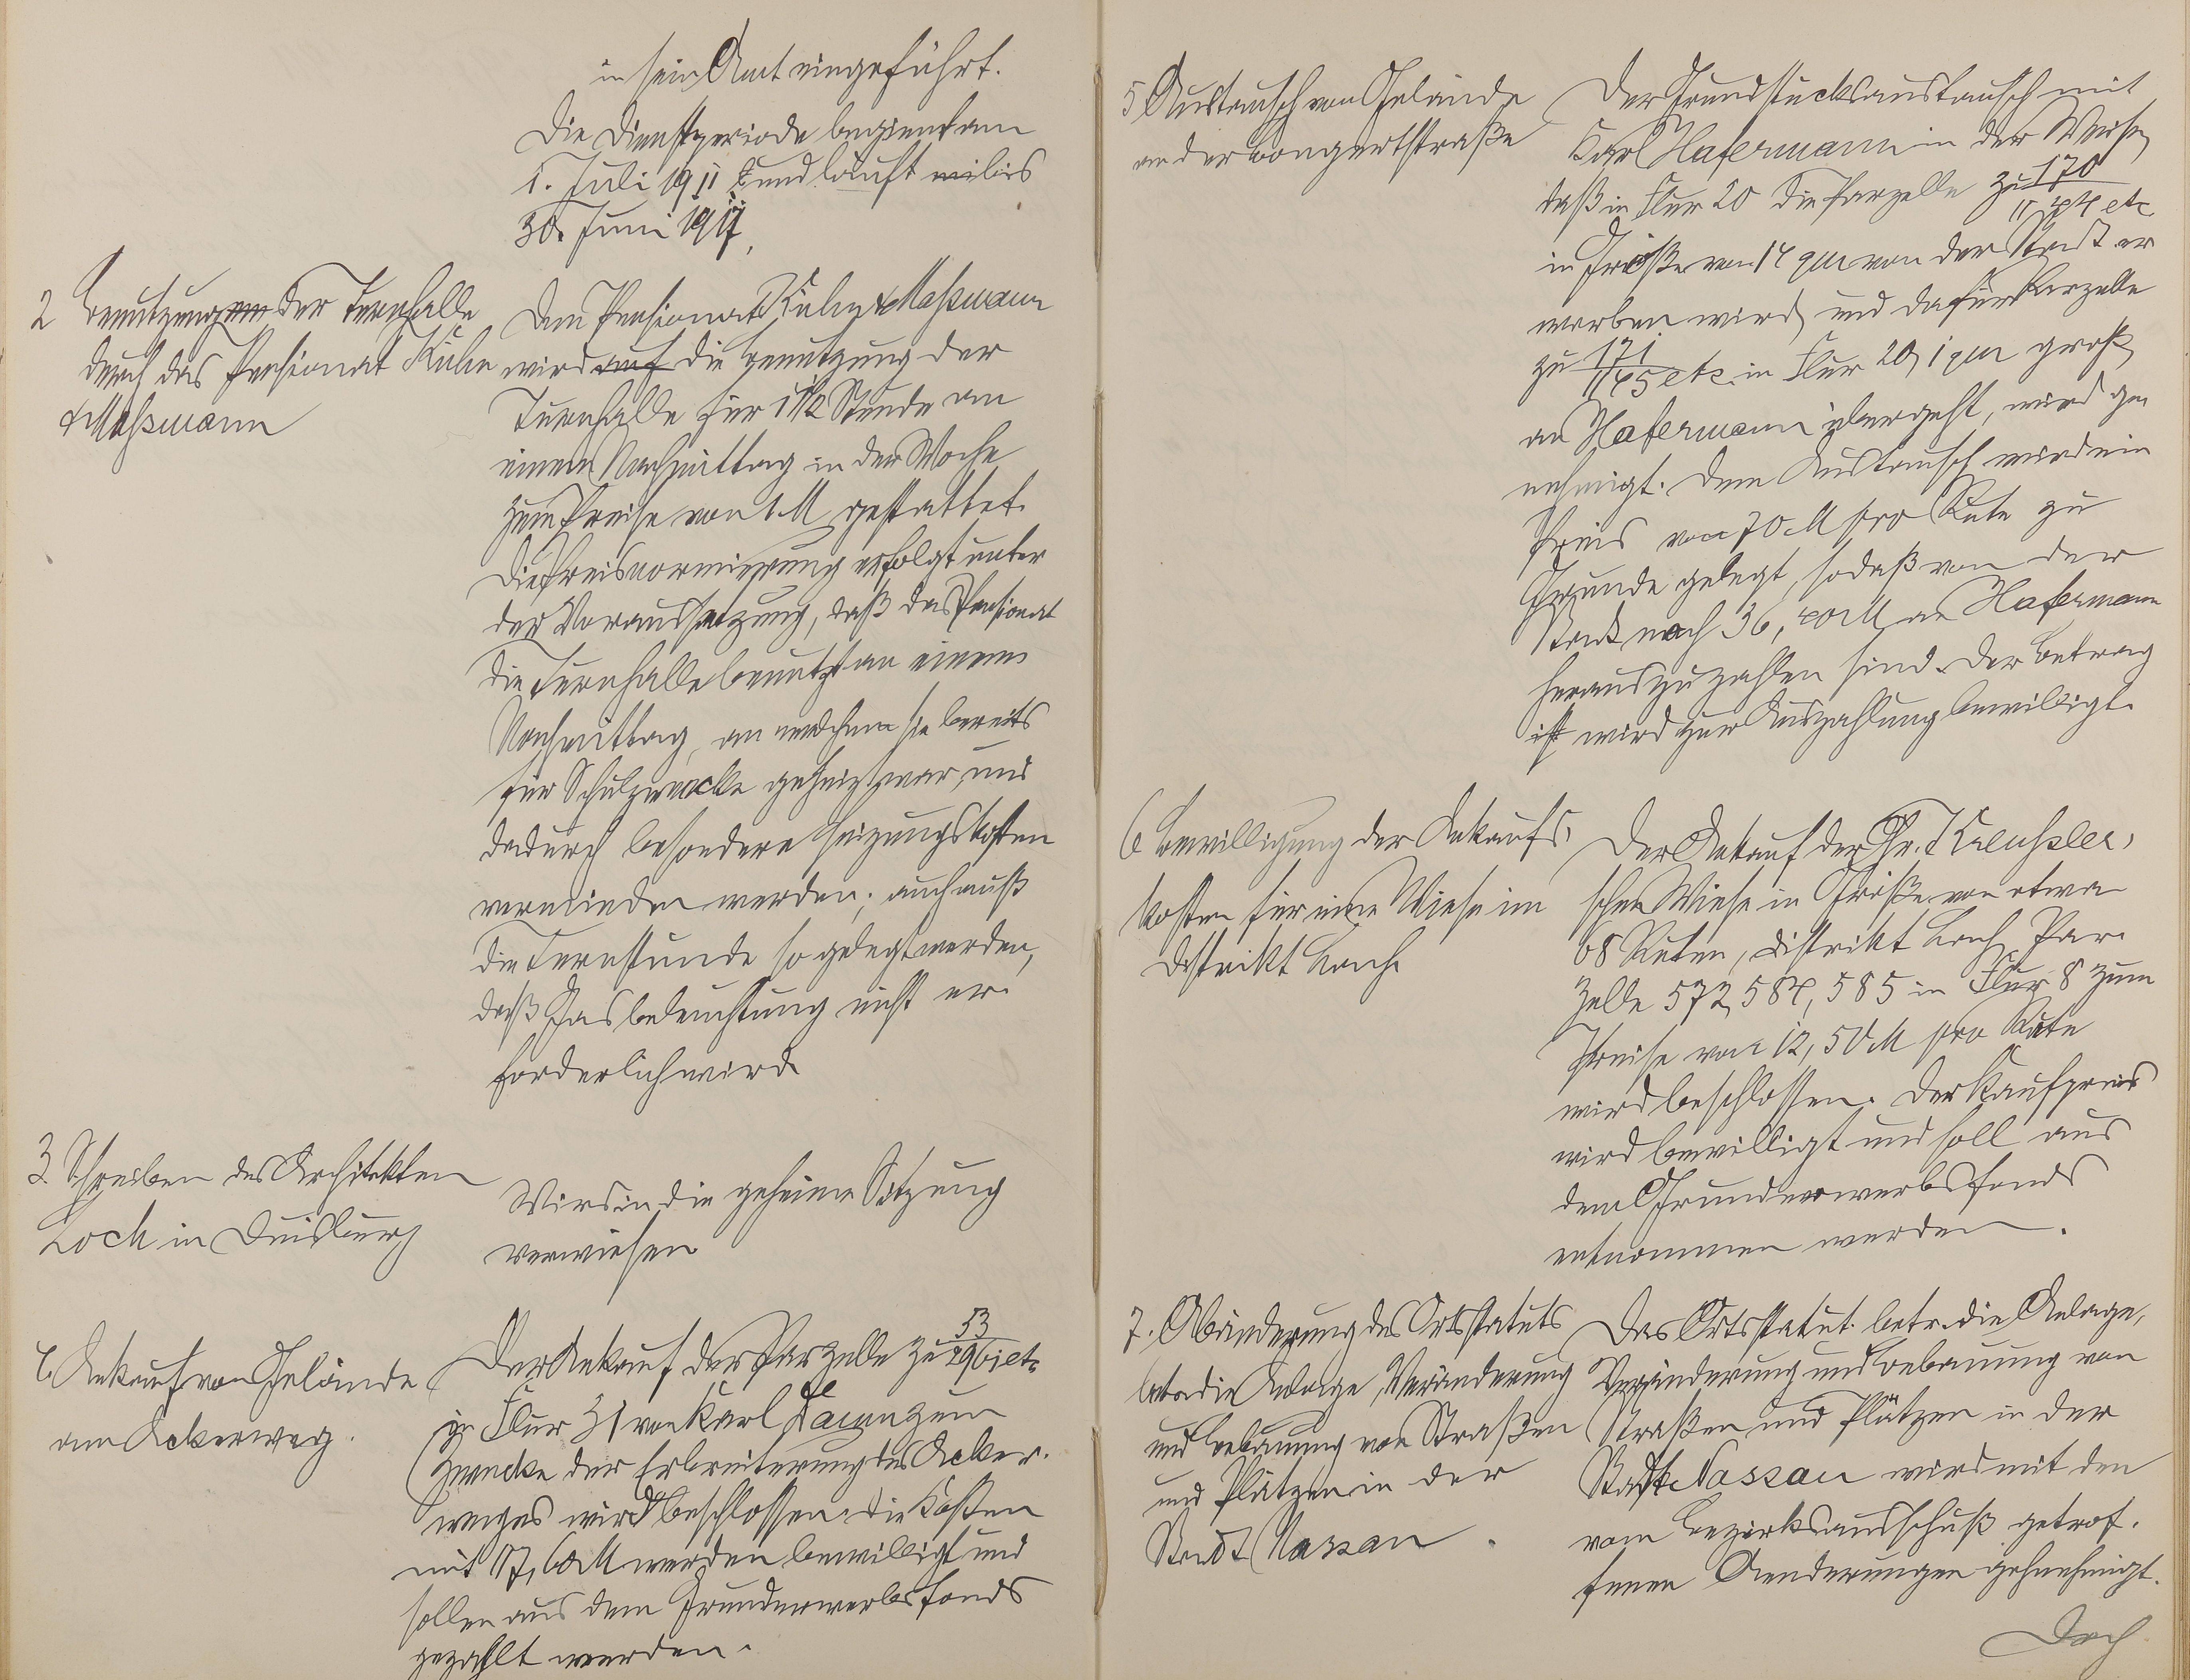 in sein Amt eingeführt.
Die Dienstperiode beginnt am
1. Juli 1911 und läuft bis
30. Juni 1917.
2 Benutzung der Turnhalle
durch das Pensionat Kuhn
& Maßmann
Dem Pensionat Kuhn & Maßmann
wird auf die Benutzung der
Turnhalle für 1 1/2 Stunde an
einem Nachmittag in der Woche
zum Preise von 1 M gestattet.
Die Preisnormierung erfolgt unter
der Voraussetzung, daß das Pensionat
die Turnhalle benutzt an einem
Nachmittag, an welchem sie bereits
für Schulzwecke geheizt war, und
dadurch besondere Heizungskosten
vermieden werden; auch muß
die Turnstunde so gelegt werden,
daß Gasbeleuchtung nicht er-
forderlich wird
3. Schreiben des Architekten
Loch in Duisburg
Wird in die geheime Sitzung
verwiesen
4. Ankauf von Gelände
am Ackerweg.
Der Ankauf der Parzelle zu 53/2961 etc.
in Flur 31 von Karl zum
Zwecke der Erbreiterung des Acker-
weges wird beschlossen. Die Kosten
mit 17,60 M werden bewilligt und
sollen aus dem Grunderwerbsfonds
gezahlt werden.
5 Austausch von Gelände
an der Bongertstraße
Der Grundstücksaustausch mit
Karl Hafermann in der Weise,
daß in Flur 20 die Parzelle zu 170/1144 etc
in Größe von 14 qm von der Stadt er
worben wird, und dafür Parzelle
zu 171/1145 etc. in Flur 20, 1 qm groß,
an Hafermann übergeht, wird ge
nehmigt. Dem Austausch wird ein
Preis von 70 M pro Rute zu
Grunde gelegt, sodaß von der
Stadt noch 36,40 M an Hafermann
herauszuzahlen sind. Der Betrag
ist wird zur Auszahlung bewilligt.
6 Bewilligung der Ankaufs-
kosten für eine Wiese im
Distrikt Bach
Der Ankauf der Chr. Kreußler-
schen Wiese in Größe von etwa
68 Ruten, Distrikt Bach, Par-
zelle 572, 584, 585 in Flur 8 zum
Preise von 12,50 M pro Rute
wird beschlossen. Der Kaufpreis
wird bewilligt und soll aus
dem Grunderwerbsfonds
entnommen werden.
7. Abänderung des Ortsstatuts
betr. die Anlage, Veränderung
und Bebauung von Straßen
und Plätzen in der
Stadt Nassau.
Das Ortsstatut betr. die Anlage,
Veränderung und Bebauung von
Straßen und Plätzen in der
Stadt Nassau wird mit den
vom Bezirksausschuß getrof-
fenen Aenderungen genehmigt.
Doch